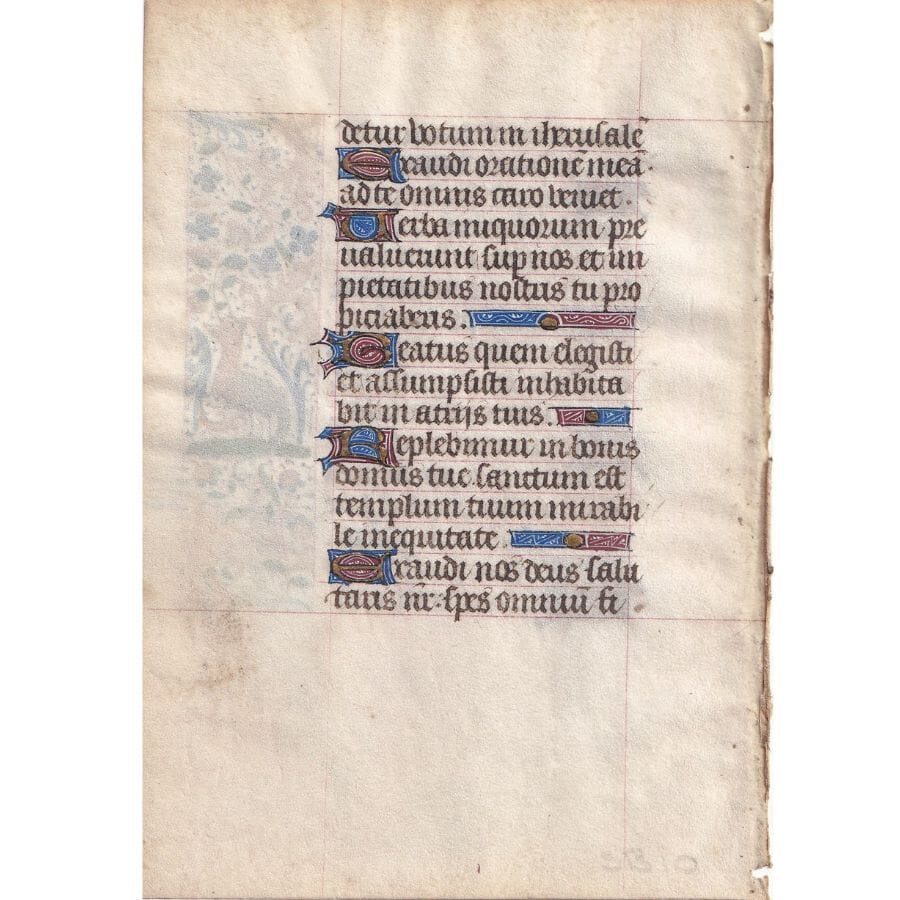 detur votum in iherusalē
Exaudi orationē meā
ad te omnis caro veniet.
Verba iniquorum pre
ualuerunt sup nos et im
pietatibus nostris tu pro
piciaberis.
Beatus quem elegisti
et assumpsisti inhabita
bit in atrijs tuis.
Replebimur in bonis
domus tue sanctum est
templum tuum mirabi
le in equitate.
Exaudi nos deus salu
taris nr̄ spes omniū fi